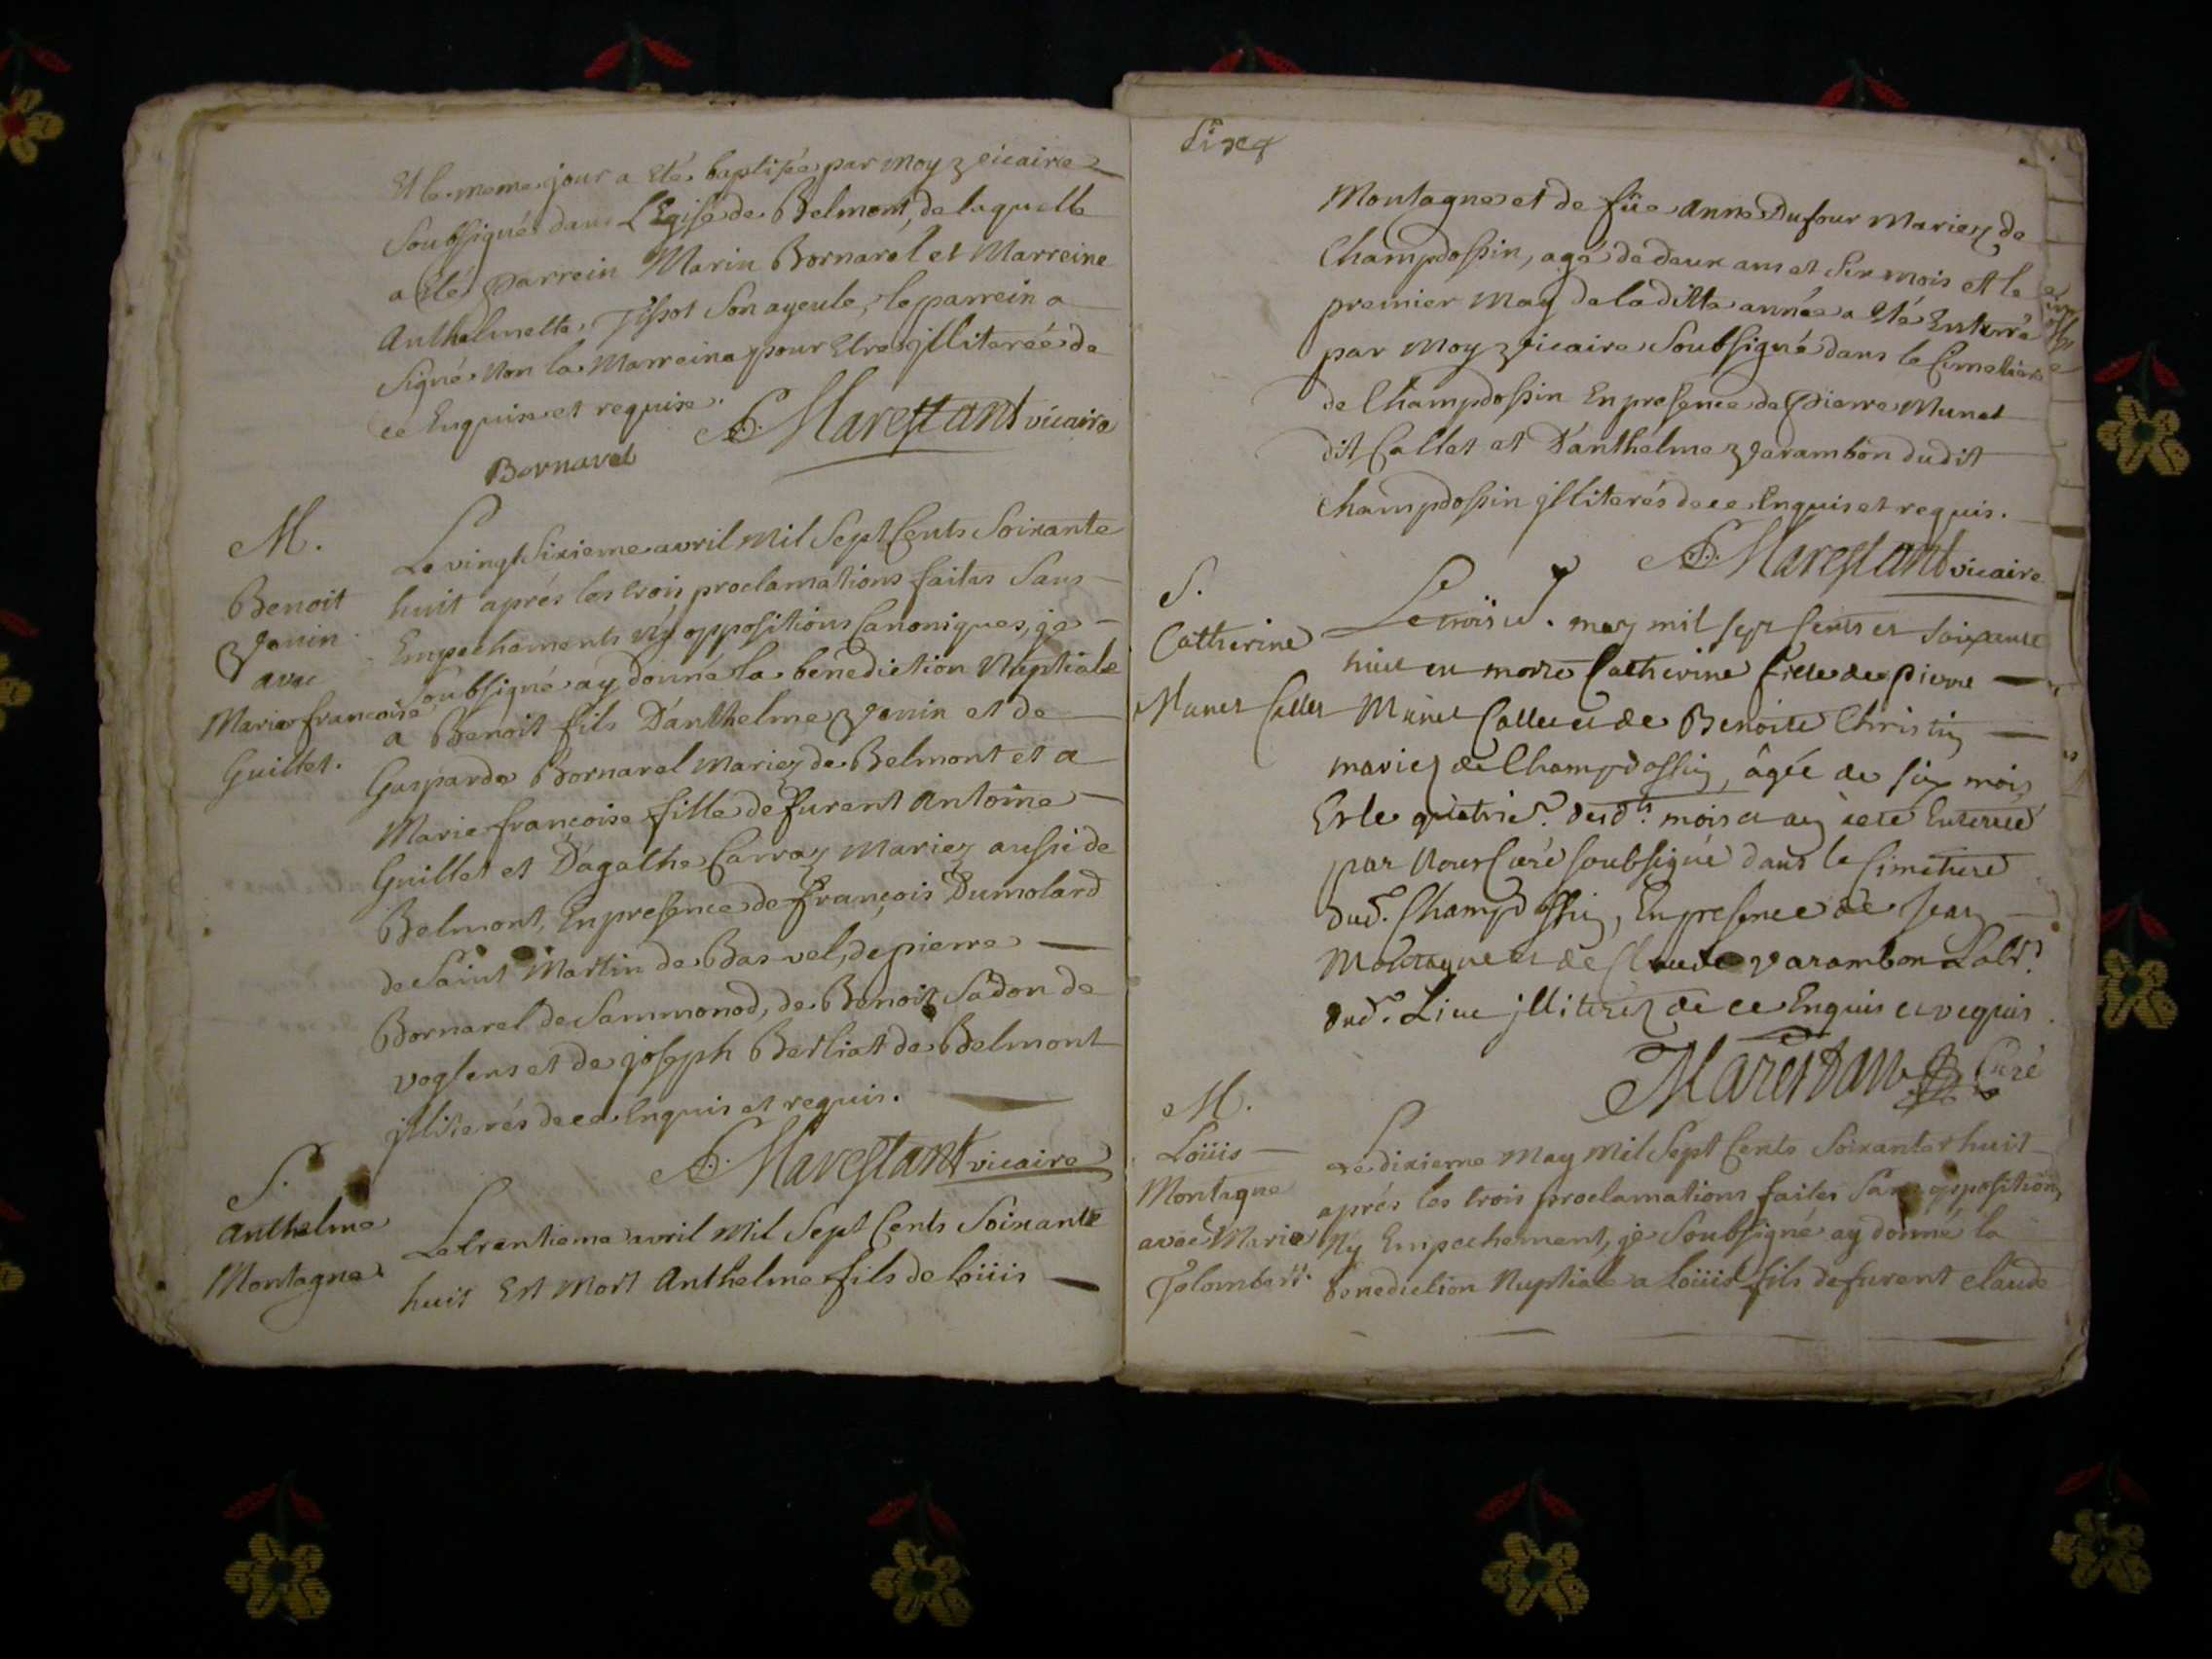 Et le meme jour a eté baptisée par moy vicaire
Soubsigné dans L'Egise de Belmont, de laquelle
a eté Parrein Marin Bornarel et Marreine
Anthelmette Tissot Son ayeule, le parrein a
Signé Non la Marreine pour Etre jlliterée de
ce Enquise et requise.
A.D. Marestant vicaire
Bornarel
M.
Benoit
Janin
avec
Marie françoise
Guillet.
Le vingt Sixieme avril Mil Sept Cents Soixante
huit aprés les trois proclamations faites Sans
Empechements ny oppositions Canoniques, je
Soubsigné ay donné la benediction Nuptiale
a Benoit fils D'anthelme Janin et de
Gasparde Bornarel Mariez de Belmont et a
Marie françoise fille defurent Antoine
Guillet et D'agathe Carraz Mariez aussi de
Belmont, En presence de françois Dumolard
de Saint Martin de Bavel, de pierre
Bornarel de Sammonod, de Benoit Sadon de
voglens et de joseph Berliat de Belmont
jlliterés de ce Enquis et requis.
A.D. Marestant vicaire
S.
Anthelme
Montagne
Le trentieme avril Mil Sept Cents Soixante
huit Est Mort Anthelme fils de Loüis
Six
Montagne et de füe Anne Dufour Mariez de
Champdossin, agé de deux ans et Six mois et le
premier May de laditte année a eté Enterré
par Moy vicaire Soubsigné dans le Cimetiere
de Champdossin En presence de Pierre Munet
dit Collet et D'anthelme varambon dudit
Champdossin jlliterés de ce Enquis et requis.
A.D. Marestant vicaire
S.
Catherine
Munet Collet
Le troise. may mil sept cents et soixante
huit en morte Catherine fille de Pierre
Munet Collet et de Benoite Christin
mariez de Champdossin, âgée de six mois
Et le quatrie. desd.ts mois et an a eté Enterrée
par Nous Curé soubsigné dans le Cimetiere
dud. Champdossin, En presence de Jean
Montagne et de Claude varambon Lab.rs
dud. Lieu jlliterez de ce Enquis et requis.
Marestan Curé
M.
Loüis
Montagne
avec Marie
Jolombert.
Le dixieme May Mil Sept Cents Soixante huit
aprés les trois proclamations faites Sans opposition,
Ny Empechement, je Soubsigné ay donné la
benediction Nuptiale a Loüis fils defurent claude